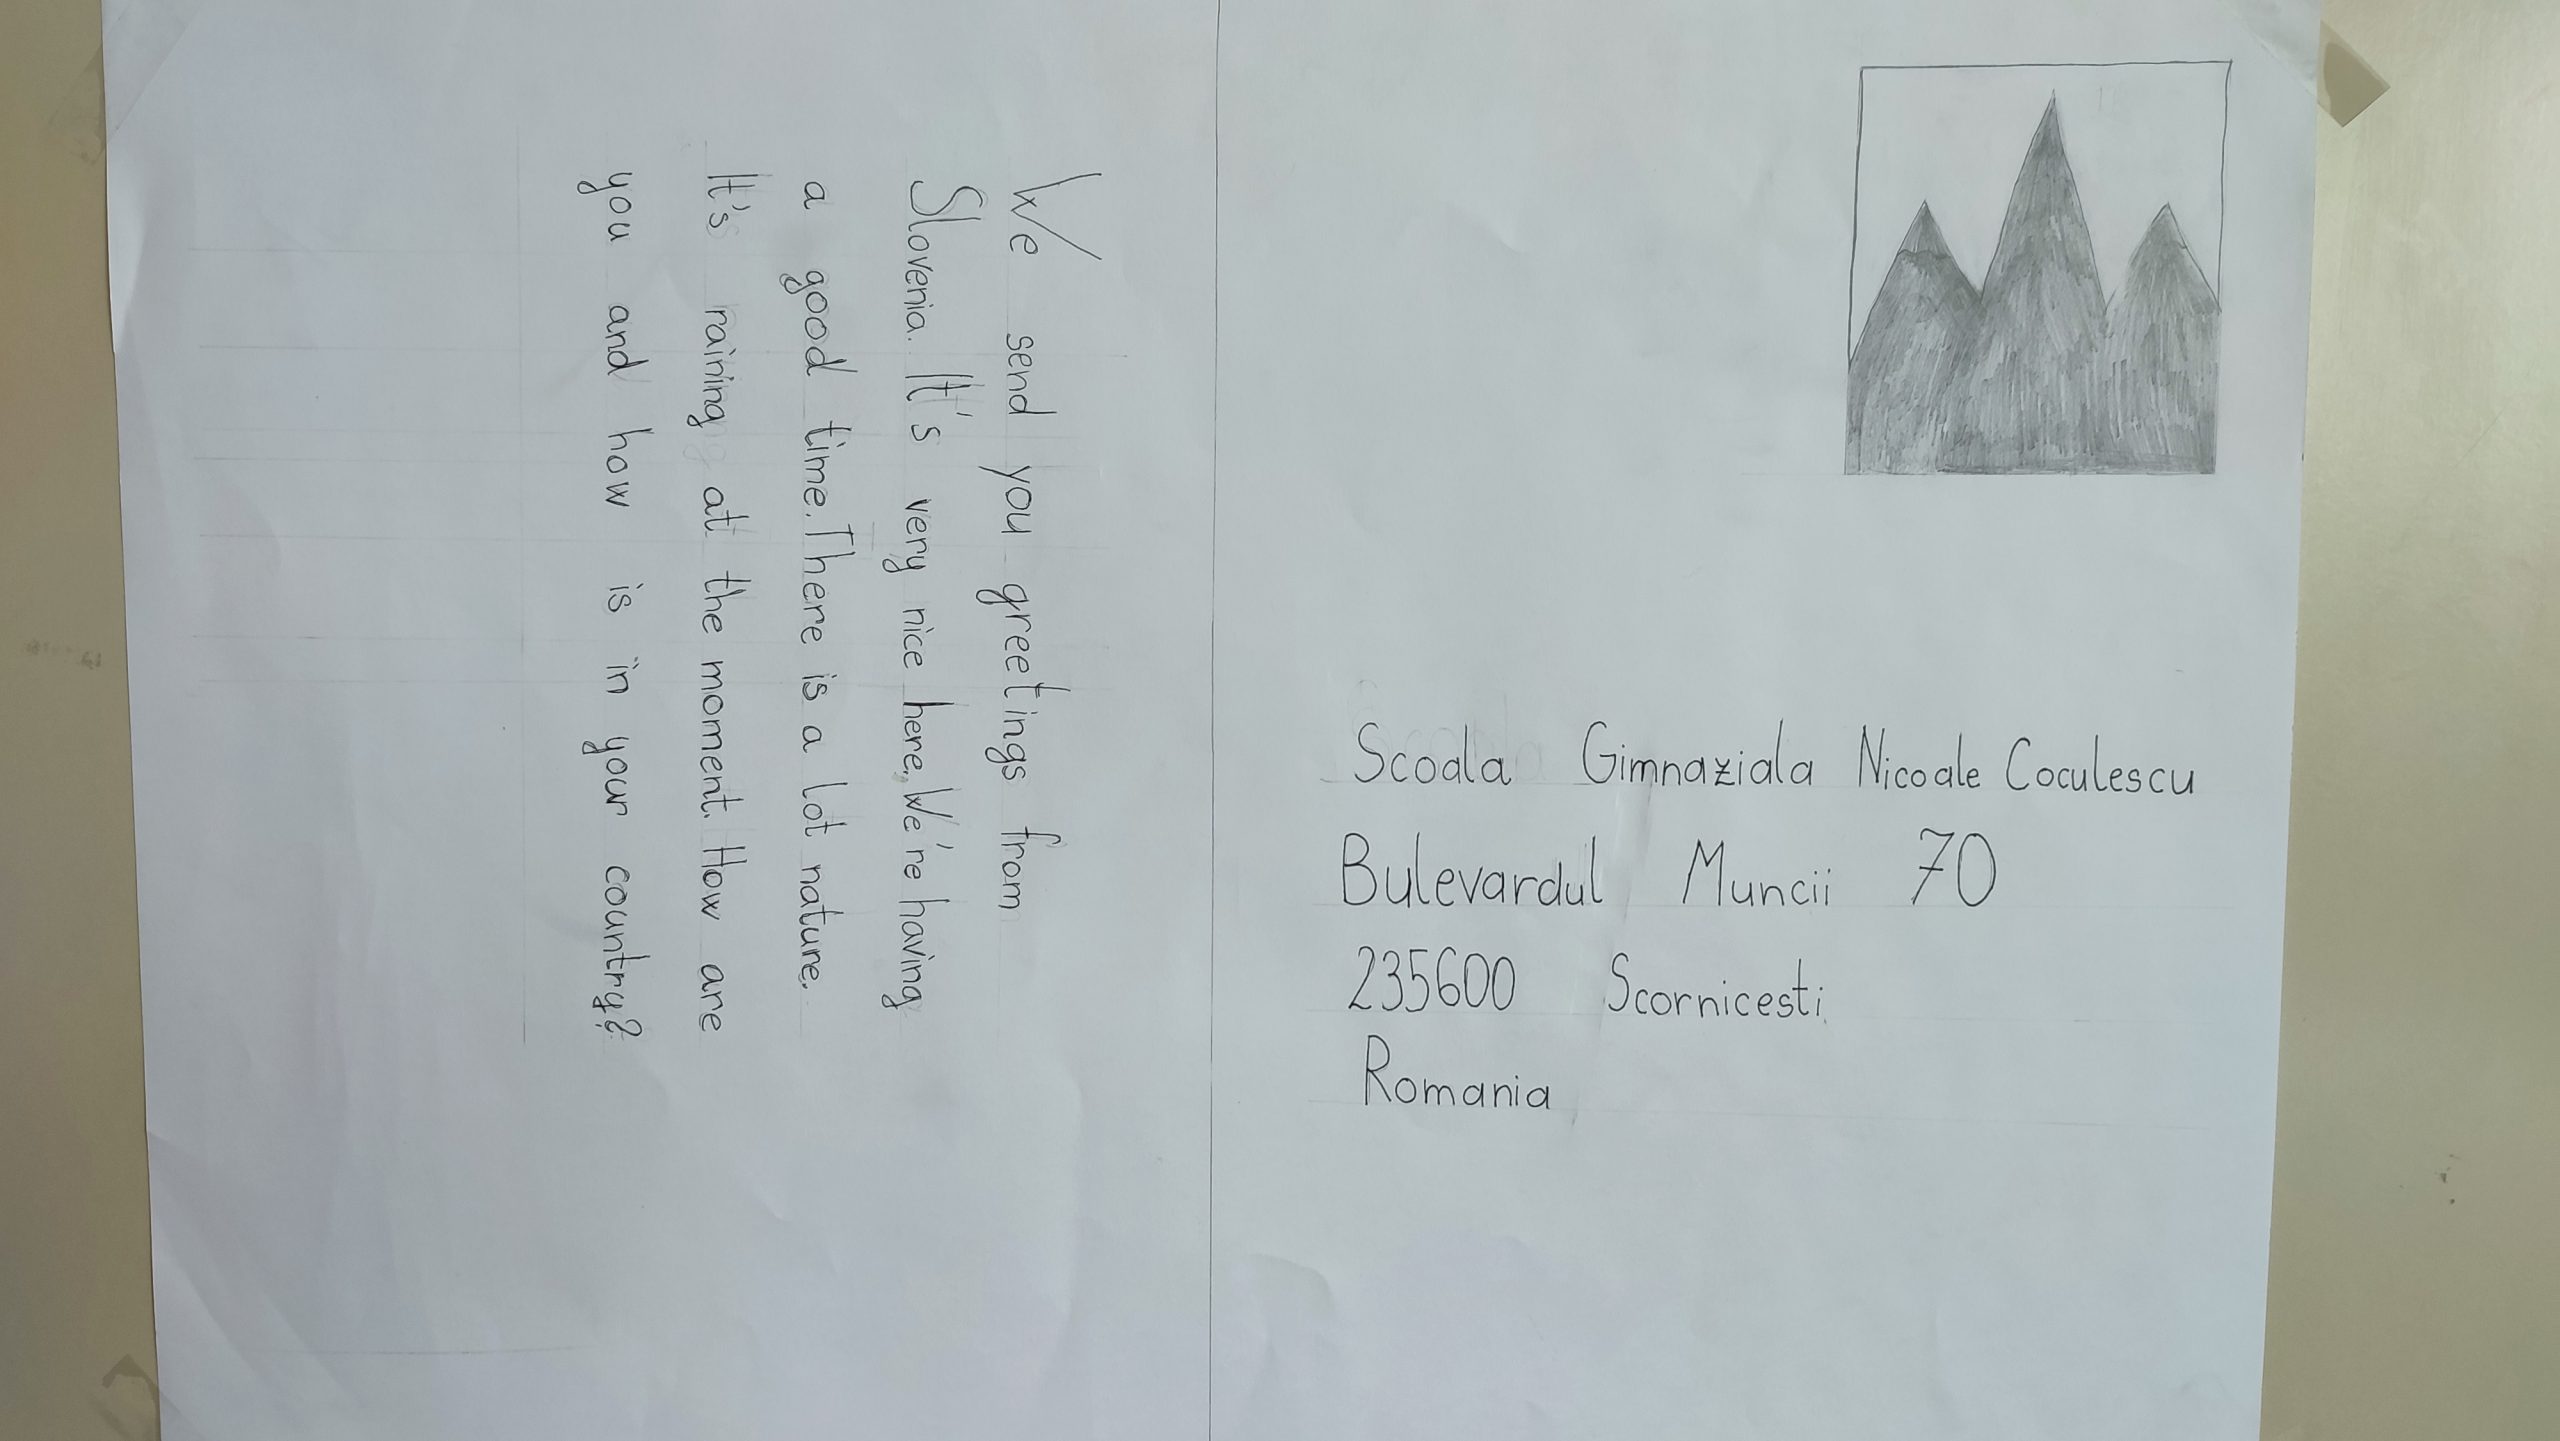 We send you greetings from
Slovenia. It's very nice here. We're having
a good time. There is a lot nature.
It's raining at the moment. How are
you and how is in your country?
Scoala Gimnaziala Nicoale Coculescu
Bulevardul Muncii 70
235600 Scornicesti
Romania